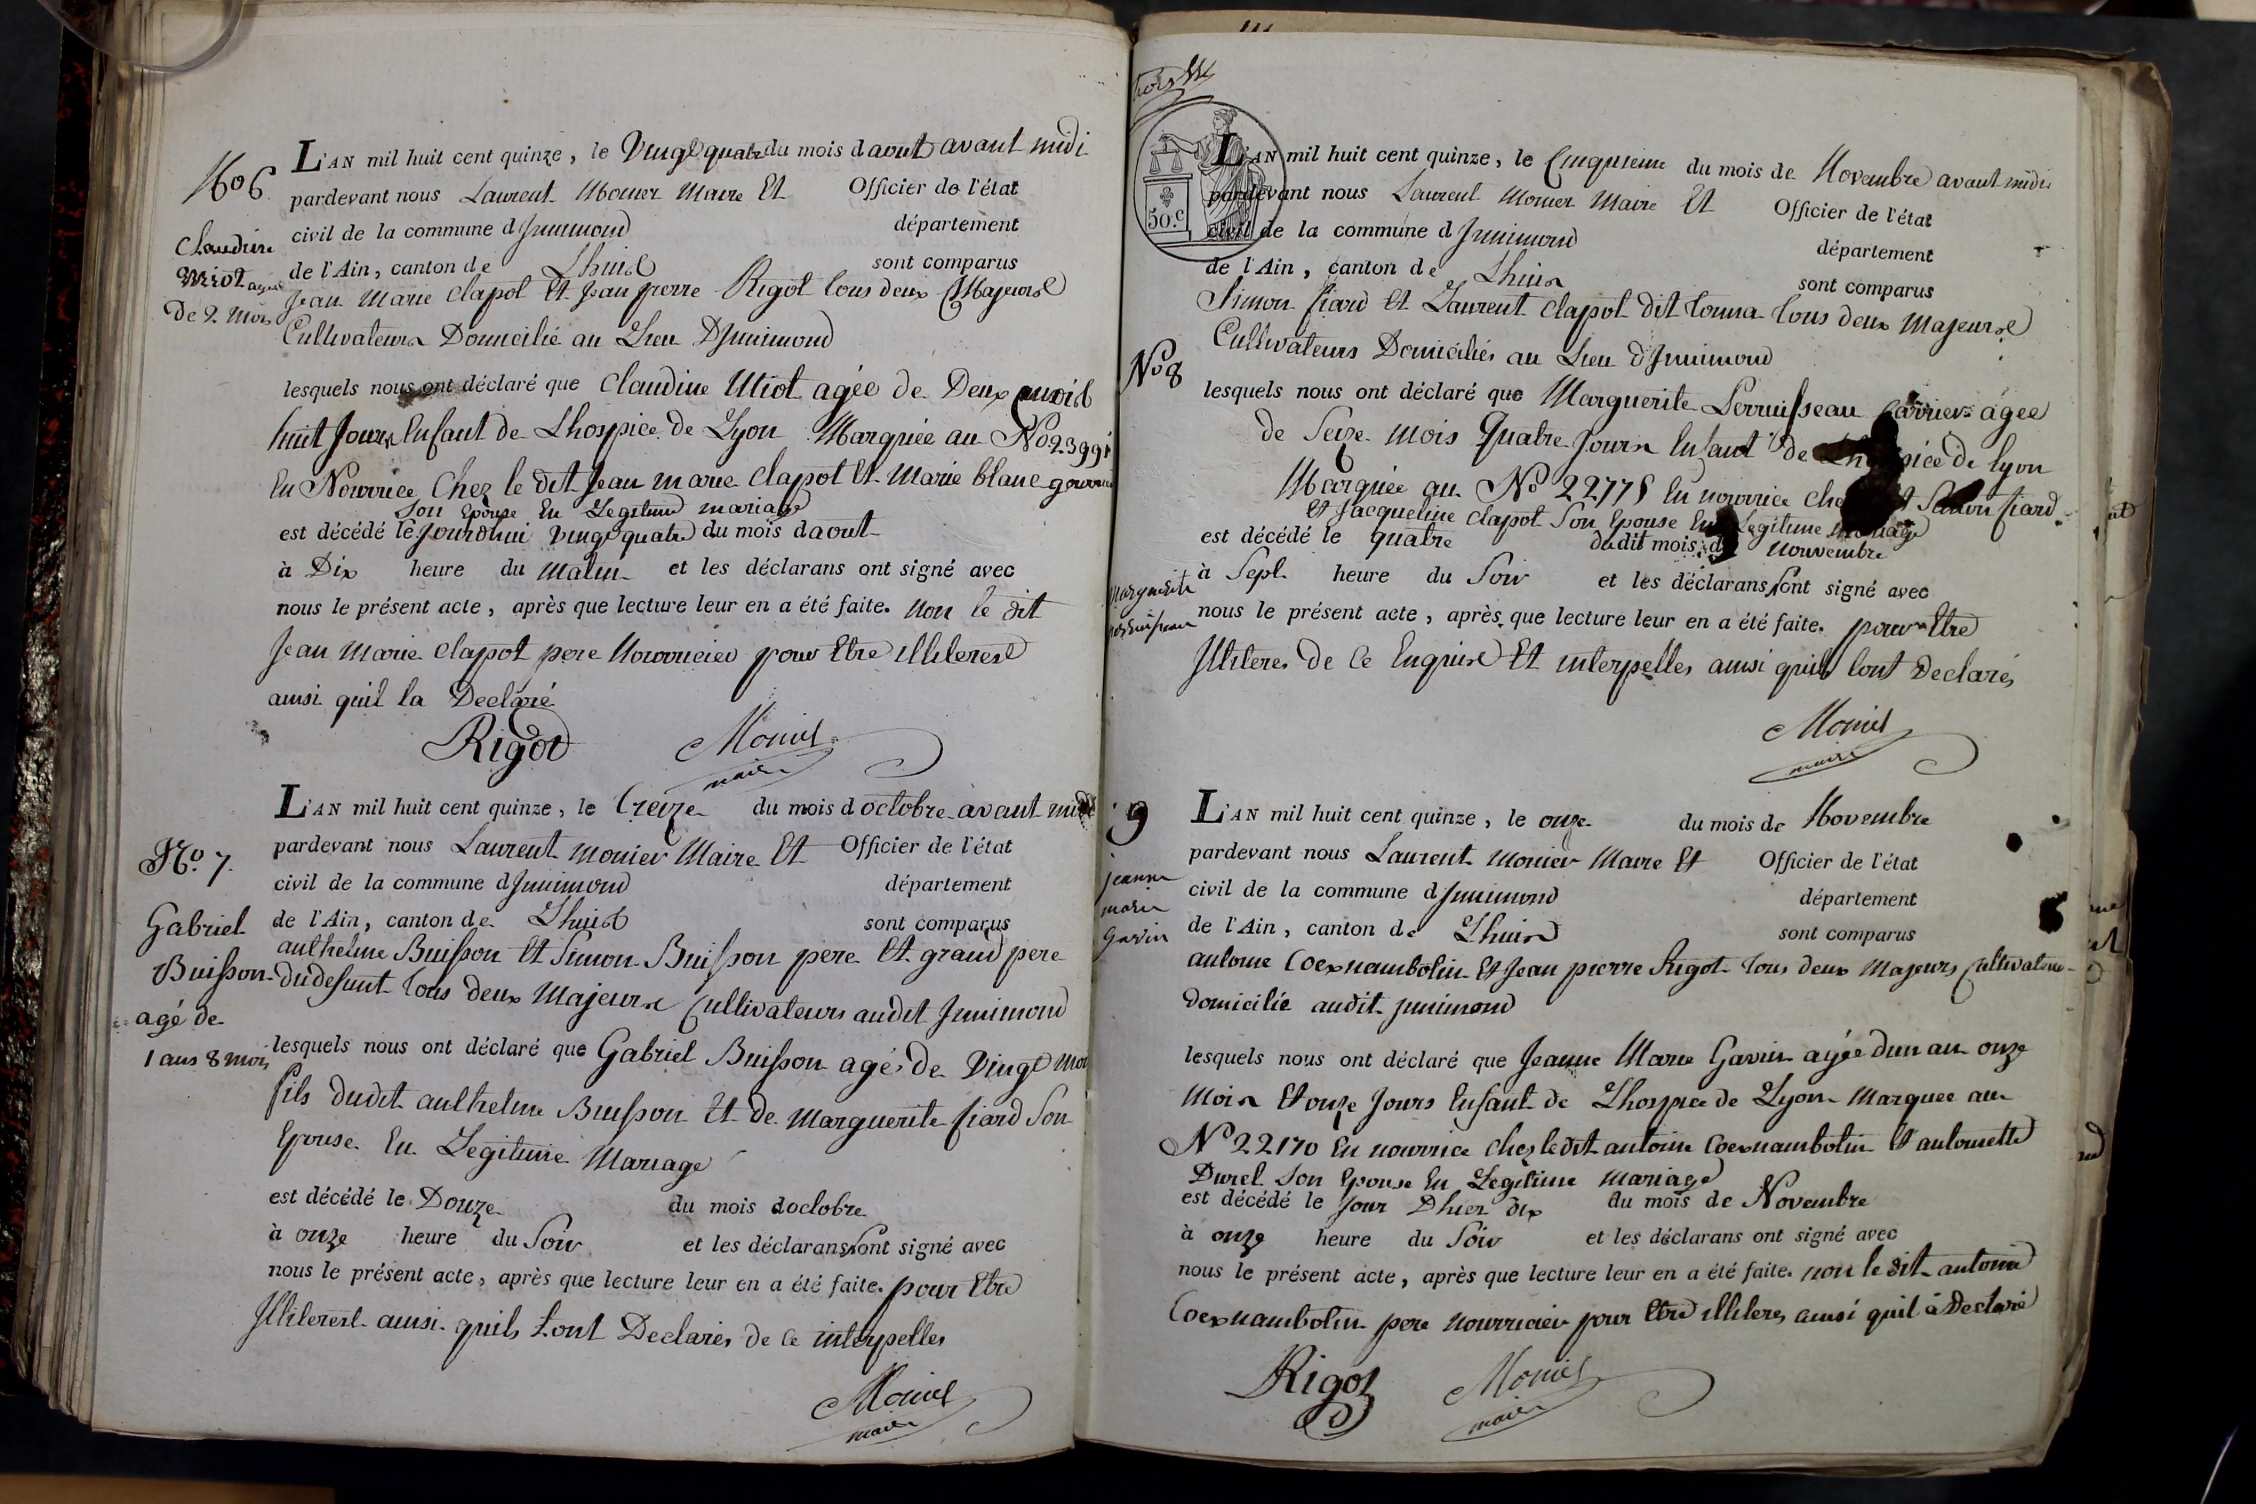 No 6
Claudine
Miot agée
De 2. Mois
L'AN mil huit cent quinze, le Vingt quatre du mois d aout avant midi
pardevant nous Laurent Monier Maire Et Officier de l'état
civil de la commune d Jnnimond département
de l'Ain, canton de Lhuis sont comparus
Jean Marie Clapot Et Jean pierre Rigot tous deux Majeurs
Cultivateurs Domicilié au Lieu DJnnimond
lesquels nous ont déclaré que Claudine Miot agée de Deux mois
huit Jours Enfant de Lhospice de Lyon Marquée au No 2399
En Nourrice Chez le dit Jean marie Clapot Et Marie blanc
Son Epouse En Legitime mariage
est décédé le Jourdhui vingt quatre du mois daout
à Dix heure du Matin et les déclarans ont signé avec
nous le présent acte, après que lecture leur en a été faite. non le dit
Jean Marie Clapot pere Nourricier pour Etre illiterest
ainsi quil la Declaré
Rigot Monier
maire
No. 7.
Gabriel
Buisson
agé de
1 ans 8 mois
L'AN mil huit cent quinze, le Treize du mois d octobre avant midi
pardevant nous Laurent monier Maire Et Officier de l'état
civil de la commune dJnnimond département
de l'Ain, canton de Lhuis sont comparus
anthelme Buisson Et Simon Buisson pere Et grand pere
du defunt tous deux Majeurs Cultivateurs audit Jnnimond
lesquels nous ont déclaré que Gabriel Buisson agé de Vingt mois
fils dudit anthelme Buisson Et de Marguerite fiard Son
Epouse En Legitime Mariage
est décédé le Douze du mois doctobre
à onze heure du Soir et les déclarans nont signé avec
nous le présent acte, après que lecture leur en a été faite. pour Etre
Jlliterest ainsi quils lont Declarés de ce interpelles
Monier
maire
50.c
L'AN mil huit cent quinze, le Cinquieme du mois de Novembre avant midi
pardevant nous Laurent Monier Maire Et Officier de l'état
civil de la commune d Jnnimond département
de l'Ain, canton de Lhuis sont comparus
Simon fiard Et Laurent Clapot dit touna tous deux Majeurs
Cultivateurs Domiciliés au Lieu dJnnimond
No 8
Marguerite
lesquels nous ont déclaré que Marguerite Perruisseau agée
de Seize mois Quatre Jours Enfant de Lhospice de Lyon
Marquée au No 22775 En nourrice chez Simon fiard
Et Jacqueline Clapot Son Epouse En Legitime Mariage
est décédé le quatre dudit mois de nouvembre
à Sept heure du Soir et les déclarans nont signé avec
nous le présent acte, après que lecture leur en a été faite. pour Etre
Jlliteres De Ce Enquis Et interpelles ainsi quils lont Declarés
Monier
maire
9
jeanne
marie
Gavin
L'AN mil huit cent quinze, le onze du mois de Novembre
pardevant nous Laurent Monier Maire Et Officier de l'état
civil de la commune dJnnimond département
de l'Ain, canton de Lhuis sont comparus
antoine Coexnambotin Et Jean pierre Rigot tous deux Majeurs Cultivateurs
domicilié audit jnnimond
lesquels nous ont déclaré que Jeanne Marie Gavin agée dun an onze
Mois Et onze Jours Enfant de Lhospice de Lyon Marquee au
No 22170 En nourrice chez ledit antoine Coexnambotin Et antoinette
Durel Son Epouse En Legitime Mariage
est décédé le Jour Dhier dix du mois de Novembre
à onze heure du Soir et les déclarans ont signé avec
nous le présent acte, après que lecture leur en a été faite. non le dit antoine
Coexnambotin pere nourricier pour Etre illiteres ainsi quil à Declaré
Rigot Monier
maire